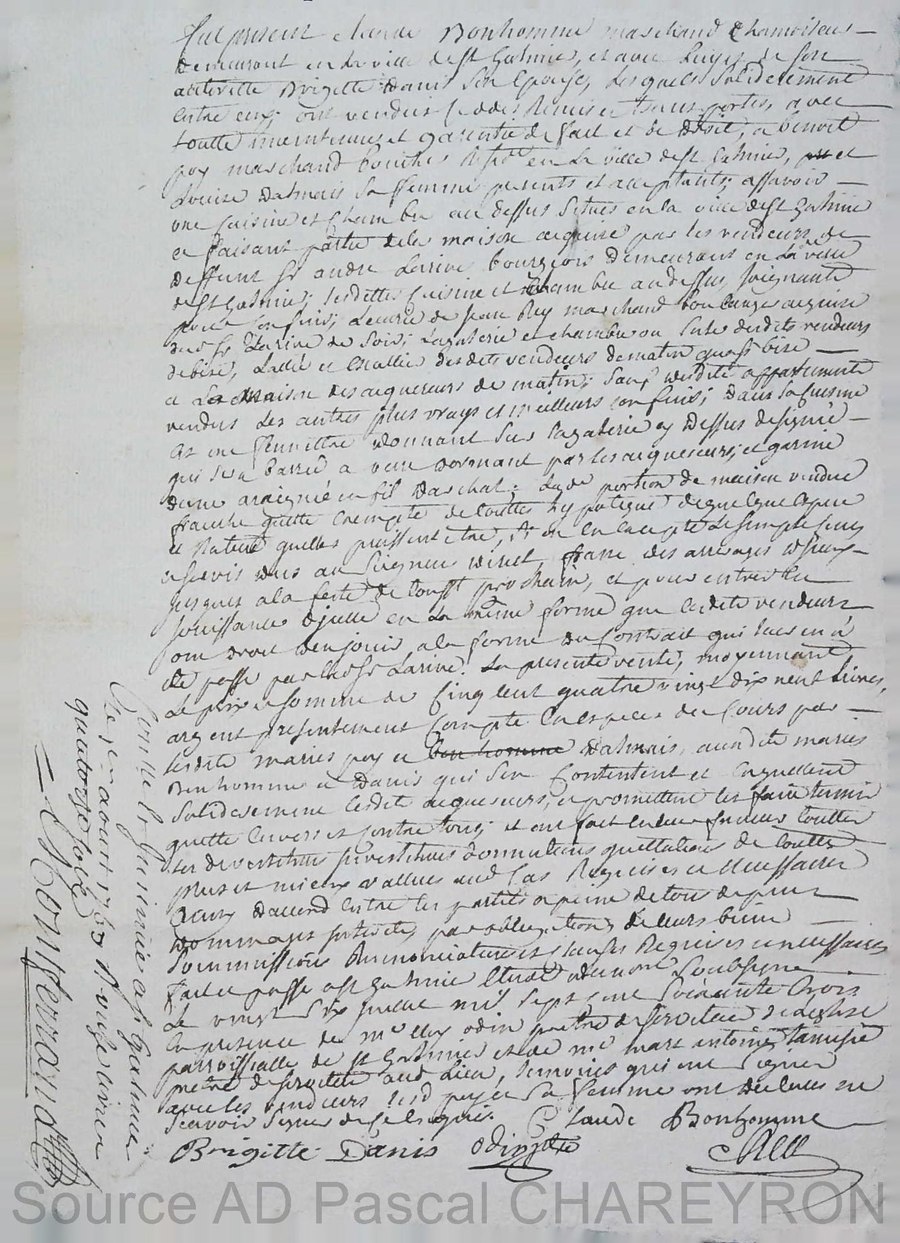 fut present Claude Bonhomme marchand Chamoiseur
demeurant en la ville de St Galmier, et avec luy de son
authorité Brigitte Danis son Epouse, lesquels solidairement
entre eux, ont vendu cedde Remis et transportés avec
toutte maintenue et garentie de fait et de droit, a benoit
puy marchand boucher en la ville de St Galmier, et
Louise Dalmais sa femme presents et acceptants; assavoir
une Cuisine et Chambre au dessus situés en la ville de St Galmier
et faisant partie de la maison acquise par les vendeurs de
deffunt sr andre Larive bourgeois demeurant en la ville
de St Galmier; lesdittes Cuisine et Chambre au dessus, joignants
pour confins; de Jean Rey marchand boulanger
dud sr Larive de soir; et chambre ou desdits vendeurs
de bise, L'allée et desdits vendeurs de matin bise
a La Maison des acquereurs de matin; sauf desdits appartements
vendus les autres plus vrays et meilleurs confins; Dans la Cuisine
est une fennettre donnant sur cy dessus designée
qui sera barrée a verre dormant par les acquereurs, et garnie
d'une araignée en fil darchal; portion de maison vendue
franche quitte Exempte de touttes hypoteques de quelque espece
et Nature quelles puissent etre, Si
et servis dus au seigneur direct, franc des arrerages
jusques a la feste de tousst prochain, et pour entrer en
jouissance en la même forme que lesdits vendeurs
ont droit d'en jouir a la forme du Contrait qui leur en a
été passé par led sr Larive; La presente vente, moyennant
le prix et somme de Cinq Cent quatre vingt dix neuf livres,
argent presentement Compté en Especes du Cours par
lesdits mariés puy et Dalmais, auxdits mariés
Bonhomme et Danis qui s'en Contentent et en quittent
solidairement lesdits acquereurs, et promettent les faire tenir
quitte Envers et contre tous; et ont fait en leur faveur touttes
les devestitures investitures donnations quittations de touttes
plus et mieux vallues aud Cas Requises et Necessaires
Ainsy d'accord entre les parties a peine de tous depens
dommages interets, par obligations de leurs biens
soummissions Renonciations et Clauses Requises et necessaires
fait et passé a St Galmier Etude du notre soubsigné
Le vingt six mil sept cent soixante trois
En presence de mre odin pretre de l'Eglise
parroissialle de St Galmier et de mre marc antoine
pretre aud Lieu, temoins qui ont signé
avec les vendeurs led puy et sa femme ont declarés ne
scavoir signer de ce Enquis.
Claude Bonhomme
Brigitte Danis odin ptre
Controllé et Insinué a St Galmier
aout 1763 Reçu
quatorze sols
Montterrand
Source AD Pascal CHAREYRON